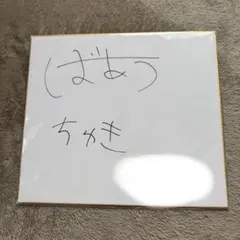 ばあう
ちゃき